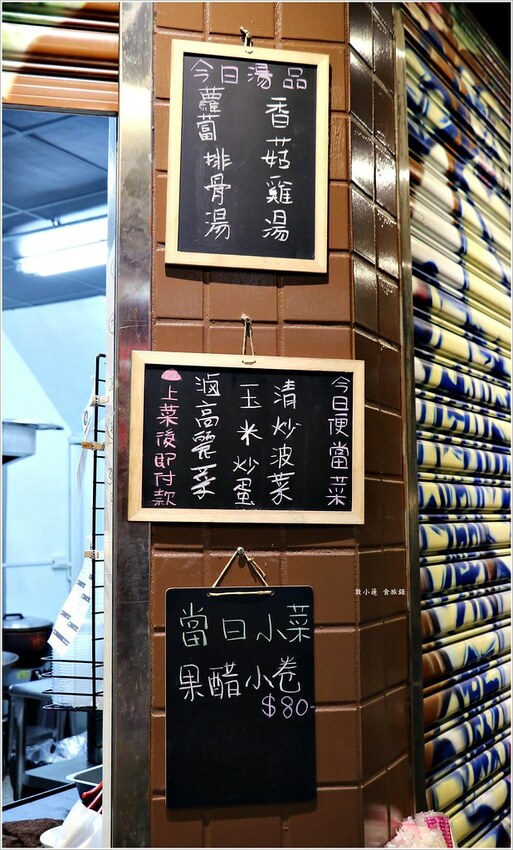 今日湯品
香菇雞湯
蘿蔔排骨湯
今日便當菜
清炒波菜
玉米炒蛋
滷高麗菜
上菜後即付款
當日小菜
果醋小卷
$80-